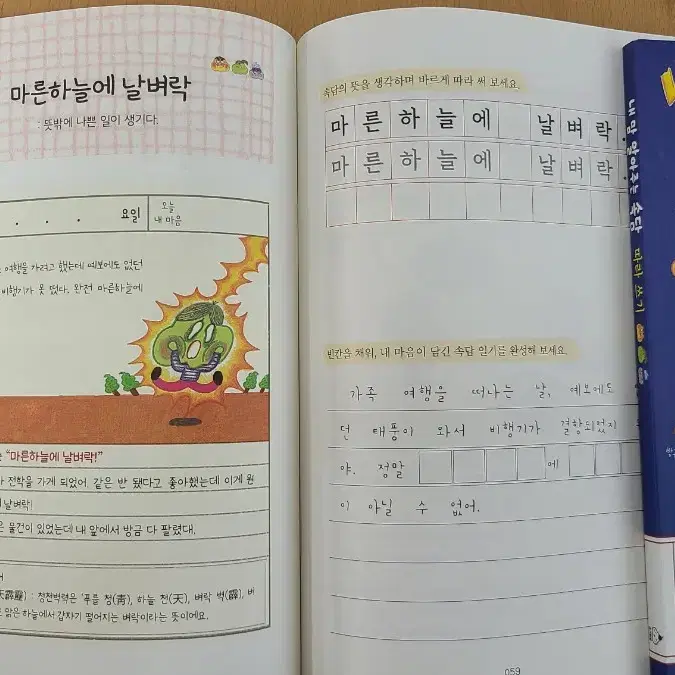 마른하늘에 날벼락
: 뜻밖에 나쁜 일이 생기다.
. . . 요일
오늘
내 마음
여행을 가려고 했는데 예보에도 없던
비행기가 못 떴다. 완전 마른하늘에
"마른하늘에 날벼락!"
전학을 가게 되었어. 같은 반 됐다고 좋아했는데 이게 웬
날벼락!
물건이 있었는데 내 앞에서 방금 다 팔렸대.
天霹靂) : 청천벽력은 '푸를 청(靑), 하늘 천(天), 벼락 벽(霹), 벼
맑은 하늘에서 갑자기 떨어지는 벼락이라는 뜻이에요.
속담의 뜻을 생각하며 바르게 따라 써 보세요.
마른하늘에 날벼락.
마른하늘에 날벼락.
빈칸을 채워, 내 마음이 담긴 속담 일기를 완성해 보세요.
가족 여행을 떠나는 날, 예보에도
던 태풍이 와서 비행기가 결항되었지
야. 정말 에
이 아닐 수 없어.
059
내 맘 알아주는 속담 따라 쓰기